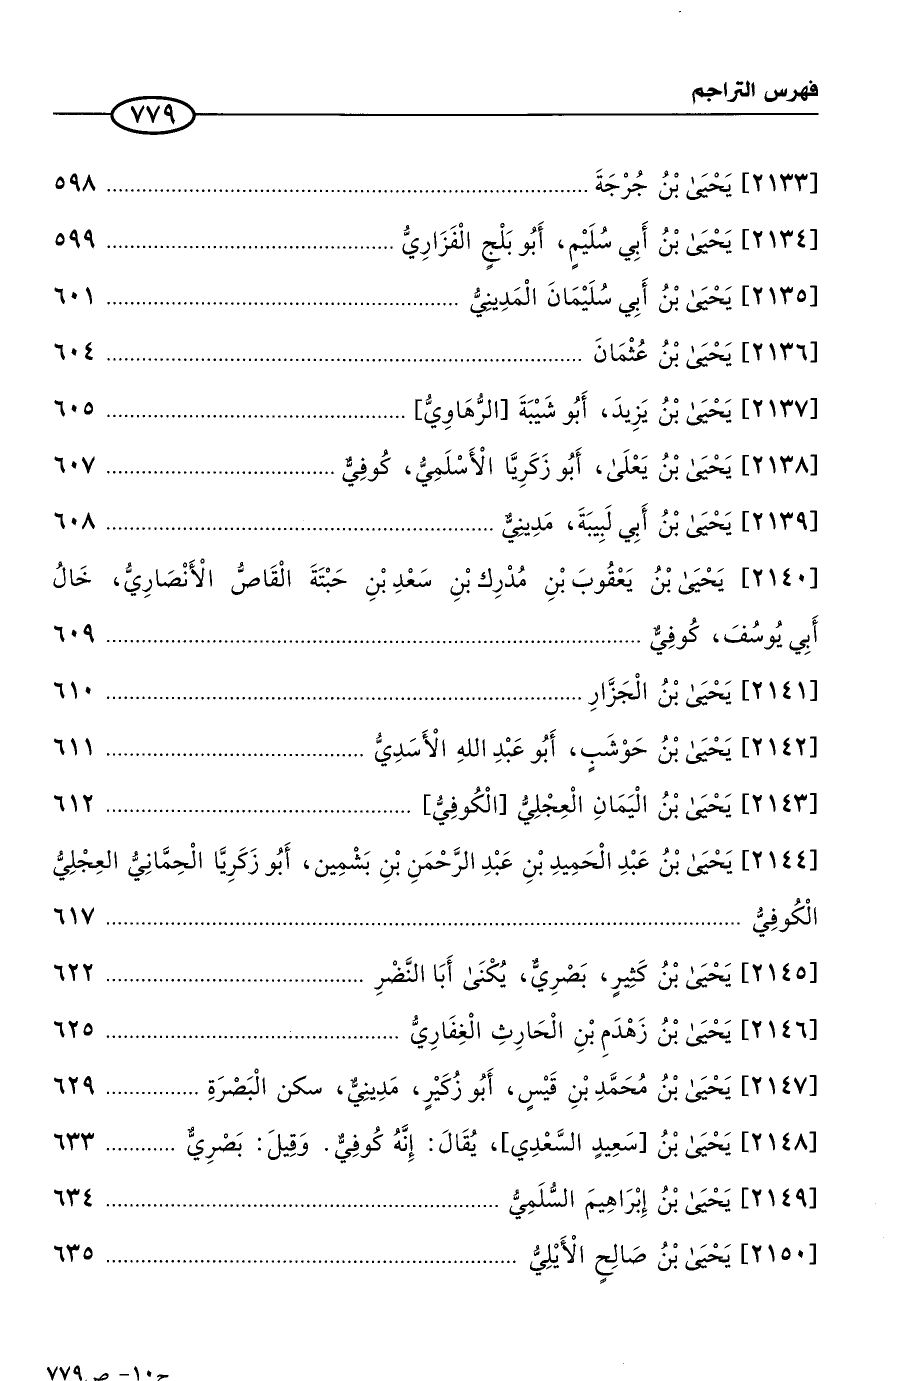 فهرس التراجم
٧٧٩
[٢١٣٣] يَحْيَىٰ بْنُ جُرْجَةَ ........ ٥٩٨
[٢١٣٤] يَحْيَىٰ بْنُ أَبِي سُلَيْمٍ، أَبُو بَلْجٍ الْفَزَارِيُّ ........ ٥٩٩
[٢١٣٥] يَحْيَىٰ بْنُ أَبِي سُلَيْمَانَ الْمَدِينِيُّ ........ ٦٠١
[٢١٣٦] يَحْيَىٰ بْنُ عُثْمَانَ ........ ٦٠٤
[٢١٣٧] يَحْيَىٰ بْنُ يَزِيدَ، أَبُو شَيْبَةَ [الرُّهَاوِيُّ] ........ ٦٠٥
[٢١٣٨] يَحْيَىٰ بْنُ يَعْلَىٰ، أَبُو زَكَرِيَّا الْأَسْلَمِيُّ، كُوفِيٌّ ........ ٦٠٧
[٢١٣٩] يَحْيَىٰ بْنُ أَبِي لَبِيبَةَ، مَدِينِيٌّ ........ ٦٠٨
[٢١٤٠] يَحْيَىٰ بْنُ يَعْقُوبَ بْنِ مُدْرِكِ بْنِ سَعْدِ بْنِ حَبْتَةَ الْقَاصُّ الْأَنْصَارِيُّ، خَالُ
أَبِي يُوسُفَ، كُوفِيٌّ ........ ٦٠٩
[٢١٤١] يَحْيَىٰ بْنُ الْجَزَّارِ ........ ٦١٠
[٢١٤٢] يَحْيَىٰ بْنُ حَوْشَبٍ، أَبُو عَبْدِ اللهِ الْأَسَدِيُّ ........ ٦١١
[٢١٤٣] يَحْيَىٰ بْنُ الْيَمَانِ الْعِجْلِيُّ [الْكُوفِيُّ] ........ ٦١٢
[٢١٤٤] يَحْيَىٰ بْنُ عَبْدِ الْحَمِيدِ بْنِ عَبْدِ الرَّحْمَنِ بْنِ بَشْمِين، أَبُو زَكَرِيَّا الْحِمَّانِيُّ العِجْلِيُّ
الْكُوفِيُّ ........ ٦١٧
[٢١٤٥] يَحْيَىٰ بْنُ كَثِيرٍ، بَصْرِيٌّ، يُكْنَىٰ أَبَا النَّضْرِ ........ ٦٢٢
[٢١٤٦] يَحْيَىٰ بْنُ زَهْدَمِ بْنِ الْحَارِثِ الْغِفَارِيُّ ........ ٦٢٥
[٢١٤٧] يَحْيَىٰ بْنُ مُحَمَّدِ بْنِ قَيْسٍ، أَبُو زُكَيْرٍ، مَدِينِيٌّ، سكن الْبَصْرَةِ ........ ٦٢٩
[٢١٤٨] يَحْيَىٰ بْنُ [سَعِيدٍ السَّعْدِي]، يُقَالَ: إِنَّهُ كُوفِيٌّ. وَقِيلَ: بَصْرِيٌّ ........ ٦٣٣
[٢١٤٩] يَحْيَىٰ بْنُ إِبْرَاهِيمَ السُّلَمِيُّ ........ ٦٣٤
[٢١٥٠] يَحْيَىٰ بْنُ صَالِحٍ الْأَيْلِيُّ ........ ٦٣٥
ج١٠- ص٧٧٩